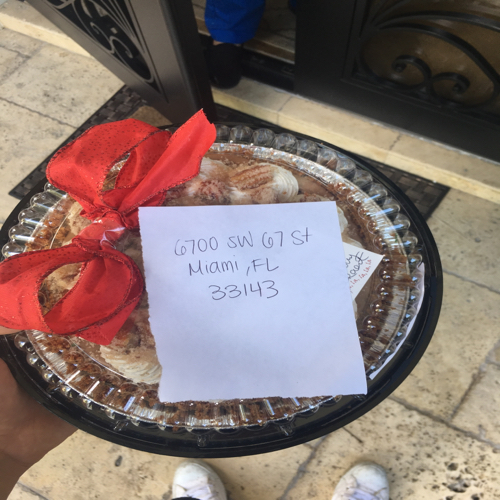 6700 SW 67 St
Miami, FL
33143